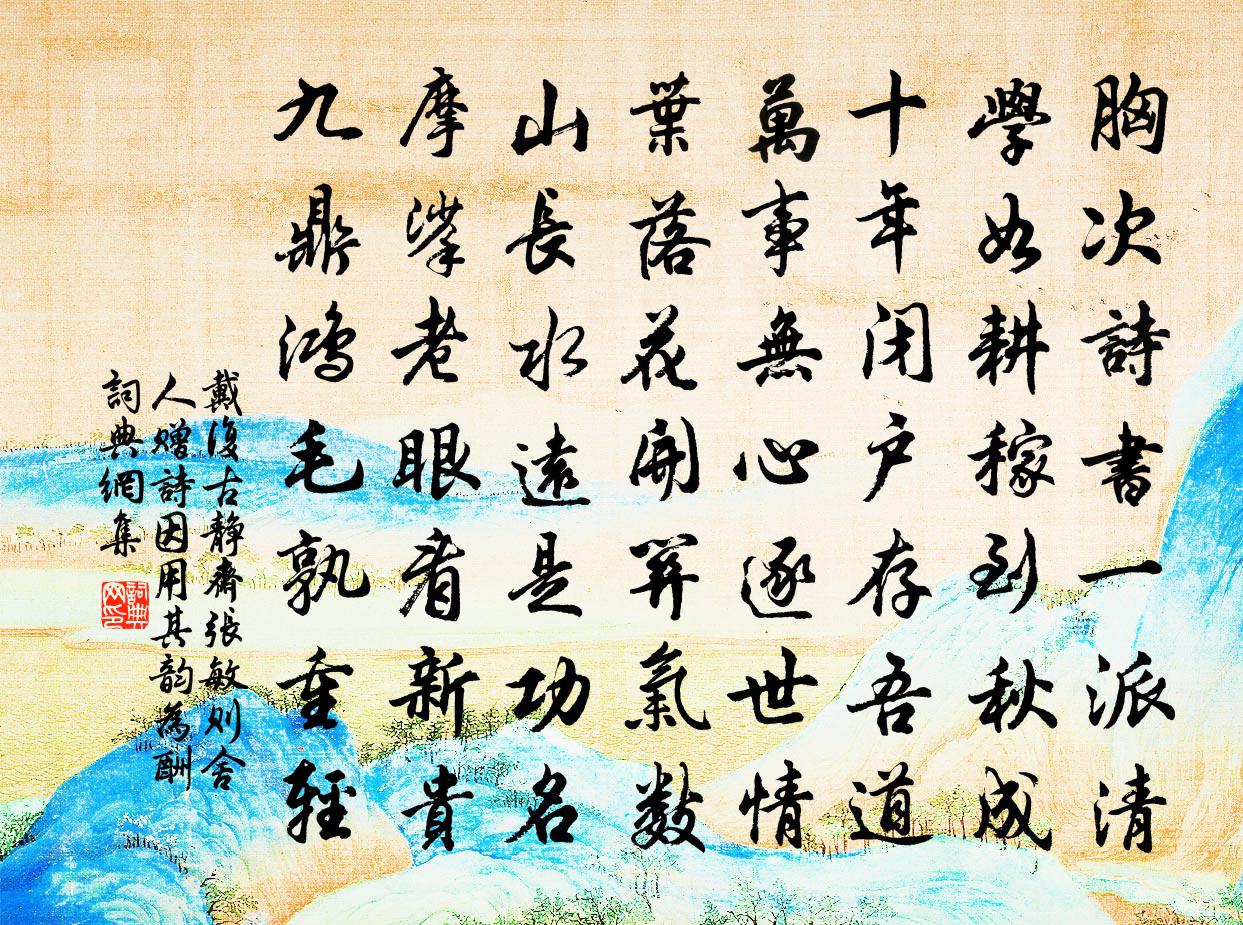 胸次詩書一派清
學如耕稼到秋成
十年闭户存吾道
萬事無心逐世情
葉落花開筭氣數
山長水遠是功名
摩挲老眼看新貴
九鼎鴻毛孰重輕
戴復古静齋張敏则舍
人赠詩因用其韵為酬
詞典網集
詞典